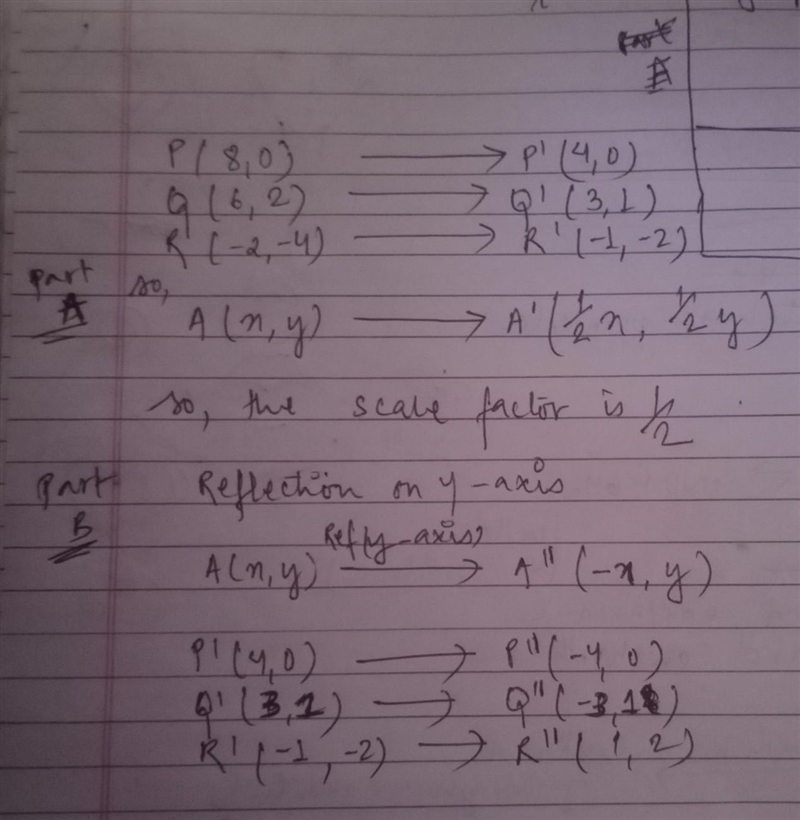 P(8,0) → P'(4,0)
Q(6,2) → Q'(3,1)
R(-2,-4) → R'(-1,-2)
Part A so,
A(x,y) → A'(1/2 x, 1/2 y)
so, the scale factor is 1/2
Part B Reflection on y-axis
Ref(y-axis)
A(x,y) → A''(-x,y)
P'(4,0) → P''(-4,0)
Q'(3,1) → Q''(-3,1)
R'(-1,-2) → R''(1,2)